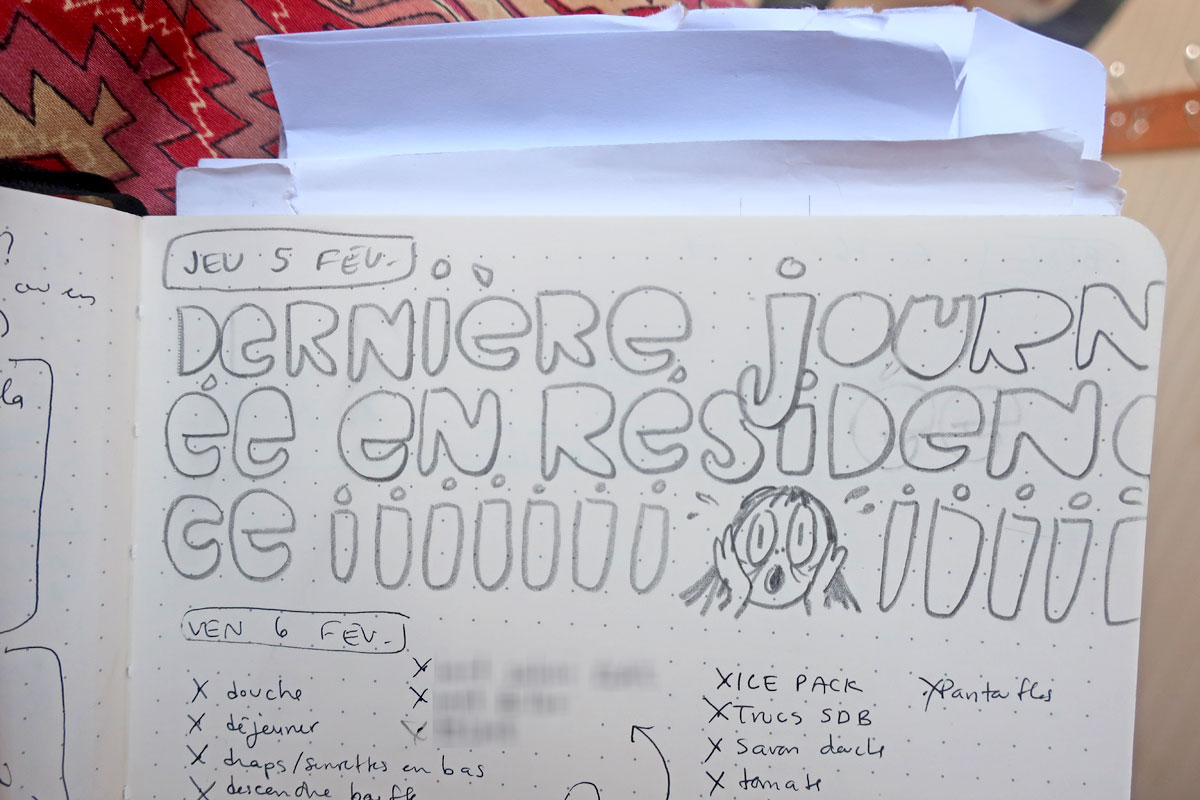 ?
la
JEU 5 FÉV.
DERNIÈRE JOURN
ÉE EN RÉSIDENC
CE iiiiiii iiiii
VEN 6 FÉV.
X douche
X déjeuner
X draps/serviettes en bas
X descendre
X
X
X
X ICE PACK
X Trucs SDB
X savon douche
X tomate
X Pantoufles